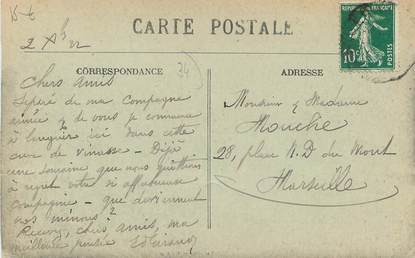 15 €
CARTE POSTALE
RÉPUBLIQUE FRANÇAISE
10c
POSTES
2 Xbre 22
34
CORRESPONDANCE
ADRESSE
Chers Amis
Séparé de ma Compagne
aimée & de vous je commence
à languir ici dans cette
de vinasse – Déjà
une semaine que nous quittions
à regret votre si affectueuse
Compagnie – que deviennent
vos minous ?
Recevez, chers amis, ma
meilleure pensée
Monsieur & Madame
Mouche
28, place N. D du Mont
Marseille